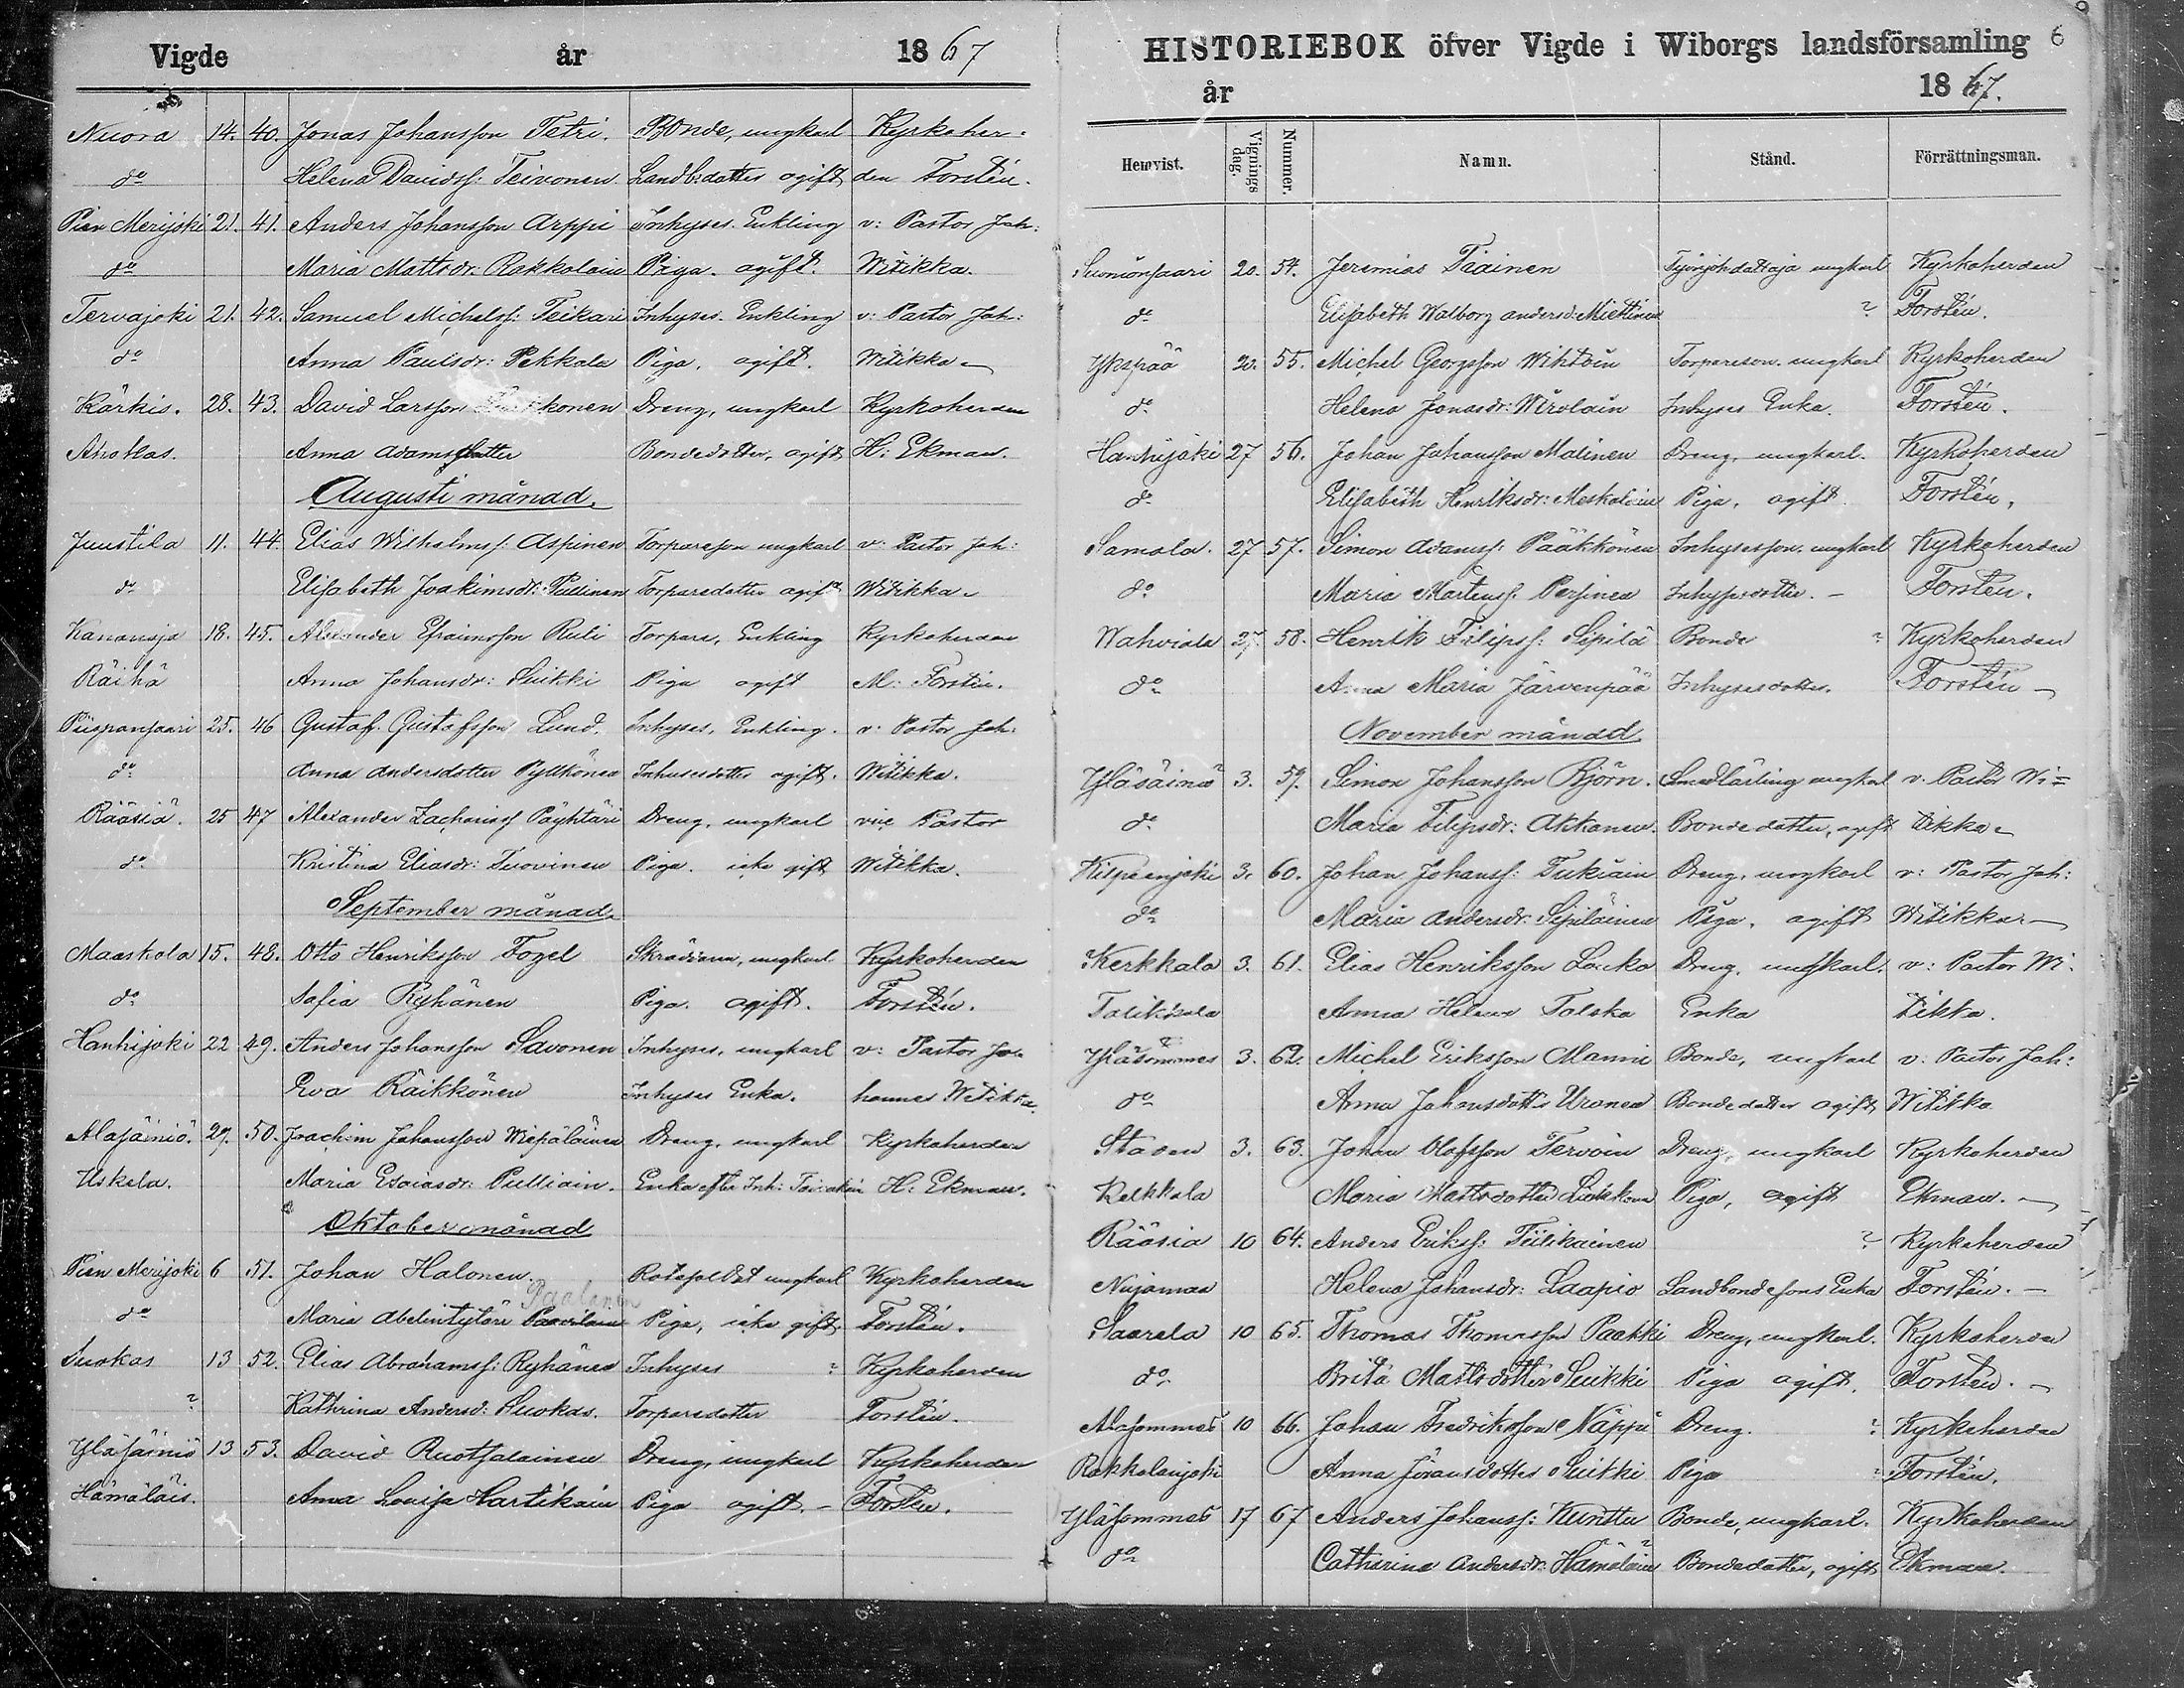 Vigde år 1867
Nuora 14. 40. Jonas Johansson Tetri. Bonde, ungkarl Kyrkoher-
do Helena Davidsf: Teivonen Landb:dotter ogift den Forstén.
Pien Merijoki 21. 41. Anders Johansson Arppi Inhyses. Enkling v: Pastor Joh:
do Maria Mattsdr: Rakkolain Piga. ogift. Witikka.
Tervajoki 21. 42. Samuel Michelsf: Teikari Inhyses. Enkling v: Pastor Joh:
do Anna Paulsdr: Pekkala Piga. ogift. Witikka
Kärkis. 28. 43. David Larsson Dreng, ungkarl Kyrkoherden
Ahokas. Anna Adamsdotter Bondedotter, ogift H: Ekman.
Augusti månad.
Juustila 11. 44. Elias Wilhelmsf: Aspinen Torpareson ungkarl v: Pastor Joh:
do Elisabeth Joakimsdr: Pullinen Torparedotter ogift Witikka
Kananoja 18. 45. Alexander Efraimsson Ruti Torpare, Enkling Kyrkoherden
Räihä Anna Johansdr: Suikki Piga ogift M: Forstén.
Piispansaari 25. 46 Gustaf Gustafsson Lund. Inhyses, Enkling. v: Pastor Joh:
do Anna Andersdotter Pyllkönen Inhysesdotter ogift. Witikka.
Rääsiä. 25 47 Alexander Zachariasf Päyhtäri Dreng, ungkarl vice Pastor
do Kristina Eliasdr: Piga. icke gift Witikka.
September månad.
Maaskola 15. 48. Otto Henriksson Fogel Skräddare, ungkarl Kyrkoherden
do Sofia Ryhänen Piga. ogift. Forstén.
Hanhijoki 22 49. Anders Johansson Savonen Inhyses, ungkarl v: Pastor Jo-
Eva Räikkönen Inhyses Enka. hannes Witikka.
Alasäiniö. 29. 50. Joachim Johansson Wiepäläinen Dreng, ungkarl Kyrkoherden
Uskela. Maria Esaiasdr: Pulliain. Enka efter Inh: H: Ekman.
Oktober månad
Pien Merijoki 6 51. Johan Halonen. Rotesoldat ungkarl Kyrkoherden
Paalanen
do Maria Abelintytär Piga, icke gift Forstén.
Suokas 13 52. Elias Abrahamsf: Ryhänen Inhyses ? Kyrkoherden
? Kathrina Andersd: Suokas. Torparedotter Forstén.
Yläsäiniö 13 53. David Ruotsalainen Dreng, ungkarl Kyrkoherden
Hämäläis. Anna Lovisa Hartikain Piga ogift. - Forstén.
HISTORIEBOK öfver Vigde i Wiborgs landsförsamling 6
år 1867.
Hemvist. Vignings dag. Nummer. Namn. Stånd. Förrättningsman.
Suonionsaari 20. 54. Jeremias Tiainen ungkarl Kyrkoherden
do Elisabeth Walborg Andersd: Miettinen ? Forstén.
Ykspää 20. 55. Michel Georgsson Wihtoin Torpareson. ungkarl Kyrkoherden
do Helena Jonasdr: Wirolain Inhyses Enka. Forstén.
Hanhijoki 27 56. Johan Johansson Malinen Dreng, ungkarl. Kyrkoherden
do Elisabeth Henriksdr: Meskalain Piga, ogift. Forstén.
Samola. 27 57. Simon Adamsf: Pääkkönen Inhysesson. ungkarl Kyrkoherden
do Maria Mårtensf. Persinen Inhysesdotter. - Forstén.
Wahviala 27. 58. Henrik Filipsf: Sipilä Bonde ? Kyrkoherden
do Anna Maria Järvenpää Inhysesdotter. Forstén
November månad
Yläsäiniö 3. 59. Simon Johansson Björn. Smedlärling ungkarl v. Pastor Wi=
do Maria Filipsdr: Akkanen. Bondedotter, ogift tikka
Kilpeenjoki 3. 60. Johan Johansf: Tukiain Dreng. ungkarl v: Pastor Joh:
do Maria Andersdr: Sipiläinen Piga. ogift Witikka.
Kerkkala 3. 61. Elias Henriksson Louko Dreng. ungkarl. v: Pastor Wi-
Talikkala Anna Helena Talska Enka tikka.
Yläsommee 3. 62. Michel Eriksson Manni Bonde, ungkarl v. Pastor Joh:
do Anna Johansdotter Uronen Bondedotter ogift Witikka
Staden 3. 63. Johan Olofsson Tervoin Dreng, ungkarl Kyrkoherden
Kelkkala Maria Mattsdotter Liukkonen Piga, ogift Ekman.
Rääsiä 10 64. Anders Eriksf: Tiilikainen ? Kyrkoherden
Nujamaa Helena Johansdr: Laapio Landbondesons Enka Forstén.
Saarela 10 65. Thomas Thomasson Paakki Dreng, ungkarl. Kyrkoherden
do Brita Mattsdotter Suikki Piga ogift. Forstén.
Alasommee 10 66. Johan Fredriksson Näppi Dreng. ? Kyrkoherden
Rakkolanjoki Anna Göransdotter Suikki Piga ? Forstén.
Yläsommee 17 67 Anders Johansf: Kunttu Bonde, ungkarl. Kyrkoherden
do Catharina Andersdr: Hämäläin Bondedotter, ogift Ekman.